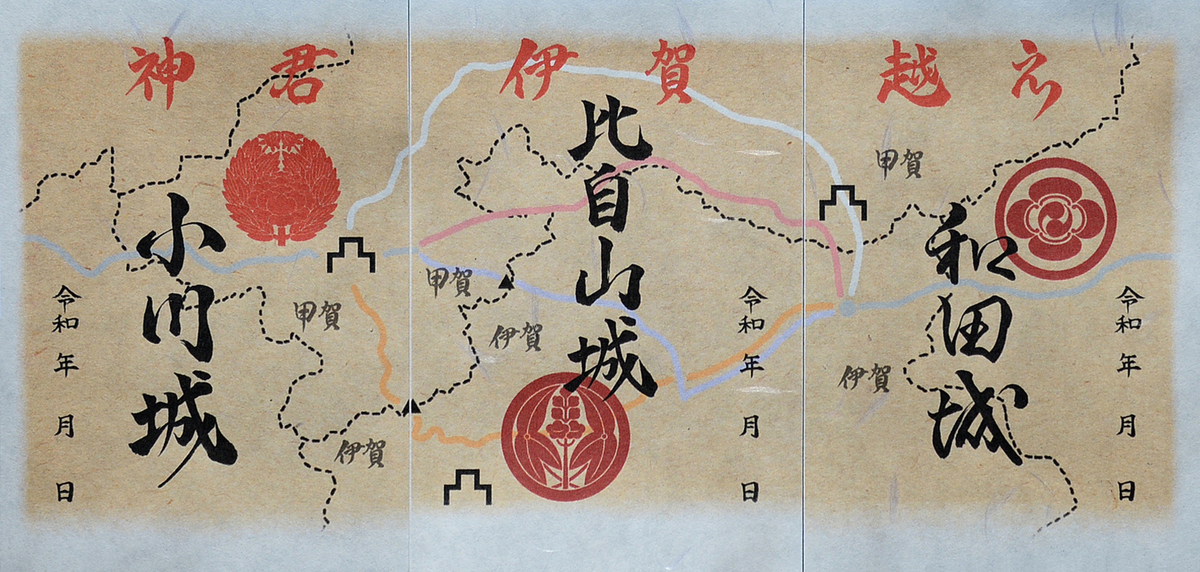 神君伊賀越え
小川城
令和 年 月 日
甲賀
伊賀
比自山城
令和 年 月 日
甲賀
伊賀
和田城
令和 年 月 日
甲賀
伊賀